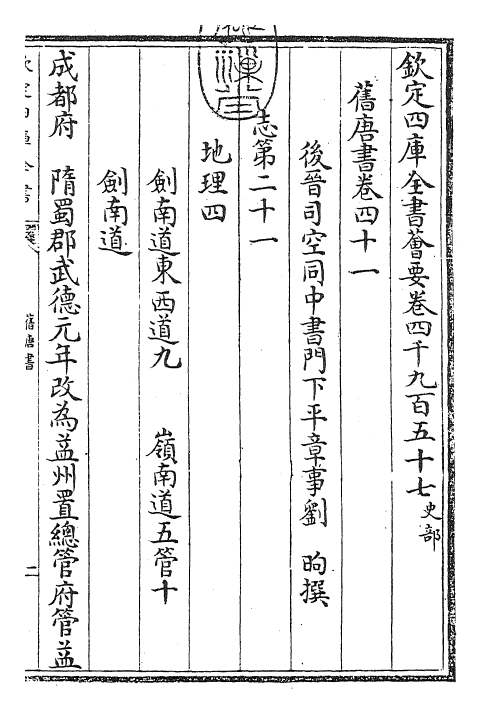 欽定四庫全書薈要卷四千九百五十七史部
舊唐書卷四十一
後晉司空同中書門下平章事劉　昫撰
志第二十一
地理四
劍南道東西道九　　嶺南道五管十
劍南道
成都府　隋蜀郡武德元年改為益州置總管府管益
舊唐書
二